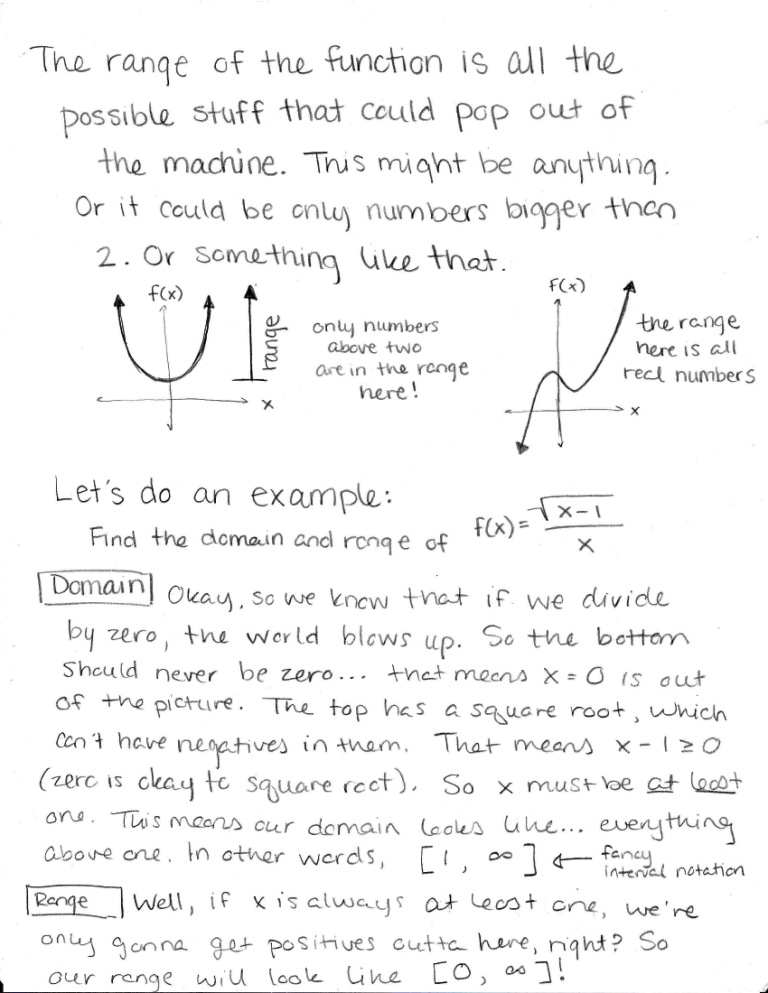 The range of the function is all the
possible stuff that could pop out of
the machine. This might be anything.
Or it could be only numbers bigger than
2. Or something like that.
f(x)
range
x
only numbers
above two
are in the range
here!
f(x)
x
the range
here is all
real numbers
Let's do an example:
Find the domain and range of f(x) = √(x-1) / x
Domain Okay, so we know that if we divide
by zero, the world blows up. So the bottom
should never be zero... that means x = 0 is out
of the picture. The top has a square root, which
can't have negatives in them. That means x - 1 ≥ 0
(zero is okay to square root). So x must be at least
one. This means our domain looks like... everything
above one. In other words, [1, ∞] ← fancy
interval notation
Range Well, if x is always at least one, we're
only gonna get positives outta here, right? So
our range will look like [0, ∞]!